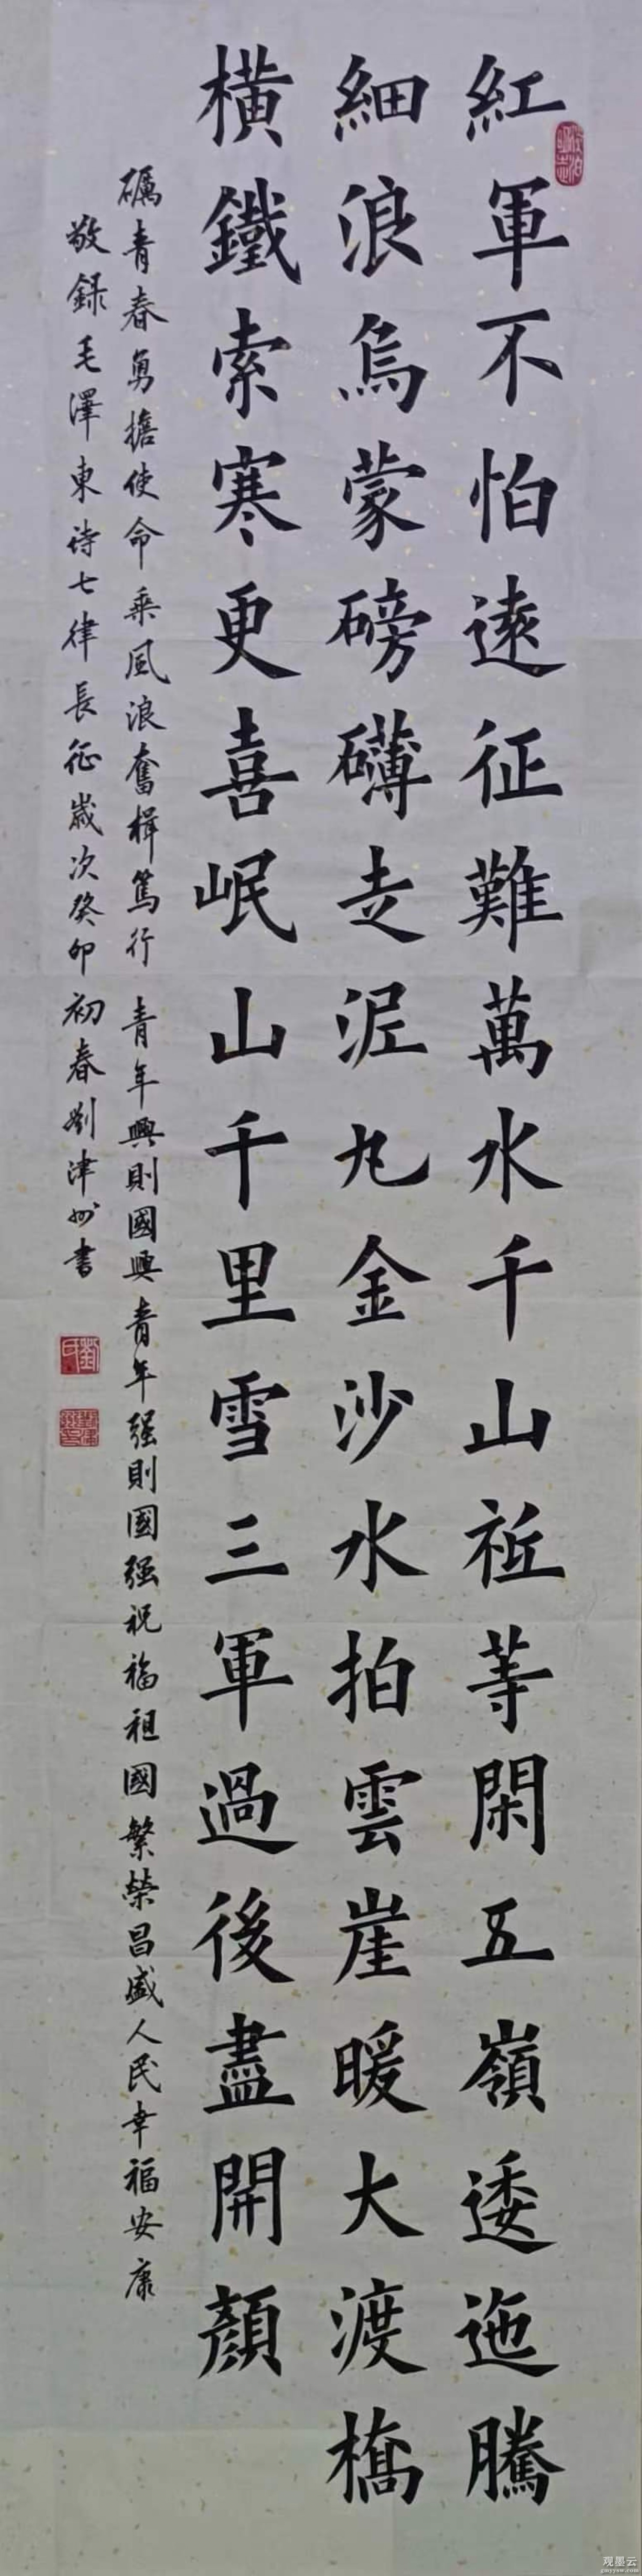 紅軍不怕遠征難萬水千山祇等閑五嶺逶迤騰
細浪烏蒙磅礴走泥丸金沙水拍雲崖暖大渡橋
橫鐵索寒更喜岷山千里雪三軍過後盡開顏
礪青春勇擔使命乘風浪奮楫篤行 青年興則國興青年强則國强祝福祖國繁榮昌盛人民幸福安康
敬録毛澤東詩七律長征歲次癸卯初春劉津州書
观墨云